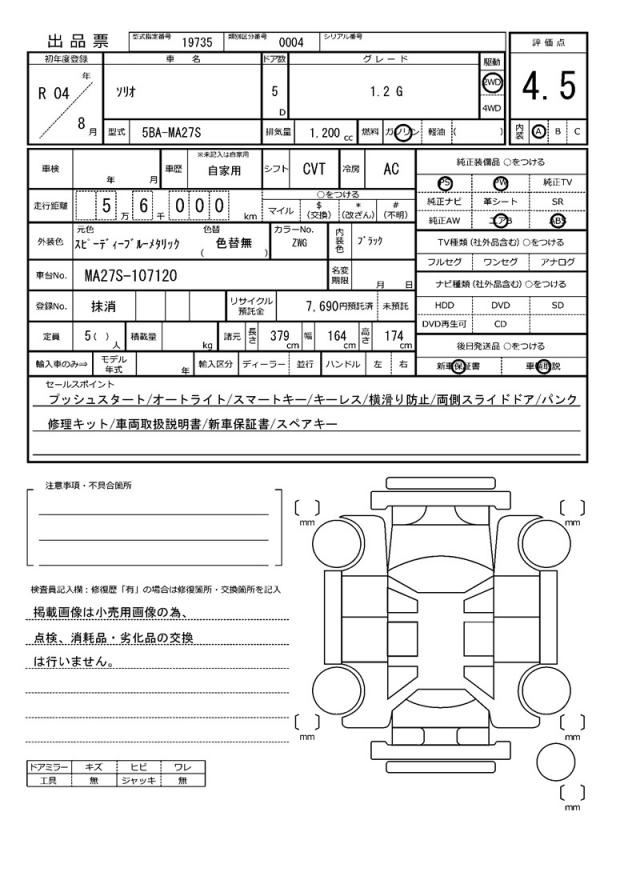 出品票 型式指定番号 19735 類別区分番号 0004 シリアル番号
初年度登録 車名 ドア数 グレード 駆動 評価点
R 04 年 8 月 ソリオ 5 D 1.2 G 2WD 4WD 4.5
型式 5BA-MA27S 排気量 1.200 cc 燃料 ガソリン 軽油 ( ) 内装 A B C
車検 年 月 車歴 ※未記入は自家用 自家用 シフト CVT 冷房 AC 純正装備品 ○をつける
PS PW 純正TV
走行距離 5 万 6 千 0 0 0 km ○をつける
マイル $ (交換) * (改ざん) # (不明)
純正ナビ 革シート SR
純正AW エアB ABS
外装色 元色 スピーディーブルーメタリック 色替 ( 色替無 ) カラーNo. ZWG 内装色 ブラック
TV種類 (社外品含む) ○をつける
フルセグ ワンセグ アナログ
車台No. MA27S-107120 名変期限 月 日
ナビ種類 (社外品含む) ○をつける
登録No. 抹消 リサイクル預託金 7,690円預託済 未預託
HDD DVD SD
DVD再生可 CD
定員 5( ) 人 積載量 kg 諸元 長さ 379 cm 幅 164 cm 高さ 174 cm
後日発送品 ○をつける
輸入車のみ⇒ モデル年式 年 輸入区分 ディーラー 並行 ハンドル 左 右
新車保証書 車輌取説
セールスポイント
プッシュスタート/オートライト/スマートキー/キーレス/横滑り防止/両側スライドドア/パンク
修理キット/車両取扱説明書/新車保証書/スペアキー
注意事項・不具合箇所
〔 〕 mm
〔 〕 mm
検査員記入欄：修復歴「有」の場合は修復箇所・交換箇所を記入
掲載画像は小売用画像の為、
点検、消耗品・劣化品の交換
は行いません。
〔 〕 mm
〔 〕 mm
ドアミラー キズ ヒビ ワレ
工具 無 ジャッキ 無
〔 〕 mm